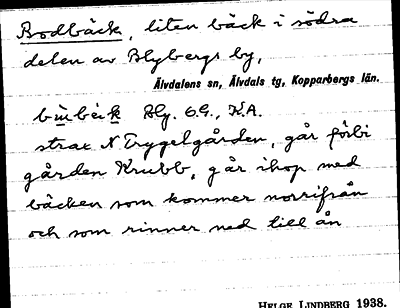 Bodbäck, liten bäck i södra
delen av Blybergs by,
Älvdalens sn, Älvdals tg, Kopparbergs län.
Bly. O.G., K.A.
strax N Trygelgården, går förbi
gården Krubb, går ihop med
bäcken som kommer norrifrån
och som rinner ned till ån
HELGE LINDBERG 1938.